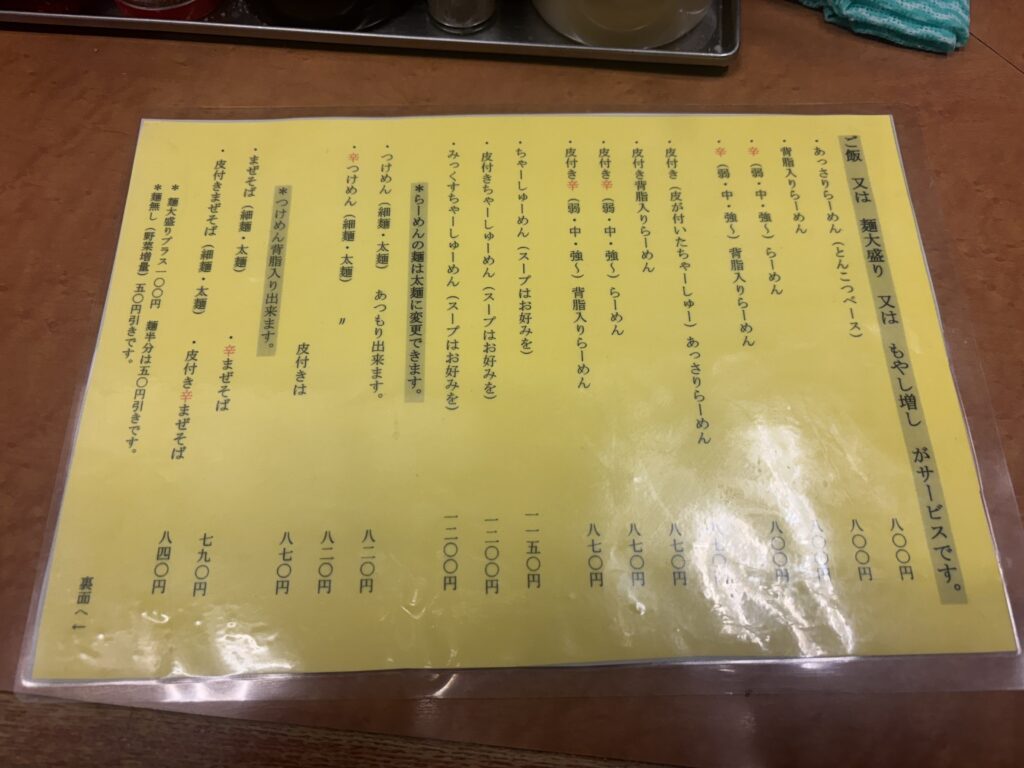 ご飯　又は　麺大盛り　又は　もやし増し　がサービスです。
・あっさりらーめん（とんこつベース）　八〇〇円
・背脂入りらーめん　八〇〇円
・辛（弱・中・強～）らーめん　八〇〇円
・辛（弱・中・強～）背脂入りらーめん　八〇〇円
・皮付き（皮が付いたちゃーしゅー）あっさりらーめん　八七〇円
・皮付き背脂入りらーめん　八七〇円
・皮付き辛（弱・中・強～）らーめん　八七〇円
・皮付き辛（弱・中・強～）背脂入りらーめん　八七〇円
・ちゃーしゅーめん（スープはお好みを）　一一五〇円
・皮付きちゃーしゅーめん（スープはお好みを）　一二〇〇円
・みっくすちゃーしゅーめん（スープはお好みを）　一二〇〇円
＊らーめんの麺は太麺に変更できます。
・つけめん（細麺・太麺）　あつもり出来ます。　八二〇円
・辛つけめん（細麺・太麺）　〃　八二〇円
皮付きは　八七〇円
＊つけめん背脂入り出来ます。
・まぜそば（細麺・太麺）　・辛まぜそば　七九〇円
・皮付きまぜそば（細麺・太麺）　・皮付き辛まぜそば　八四〇円
＊麺大盛りプラス一〇〇円　麺半分は五〇円引きです。
＊麺無し（野菜増量）五〇円引きです。
裏面へ↓